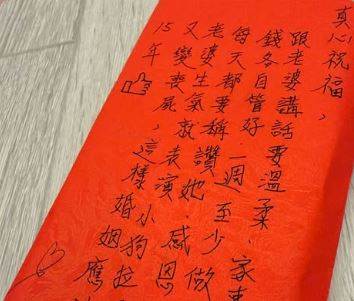 真心祝福，
跟老婆講話要溫柔、家事
錢各自管好 一週至少做
每天都要稱讚她 感恩
老婆生氣就表演小狗拉
又變喪屍，這樣婚姻應
15年